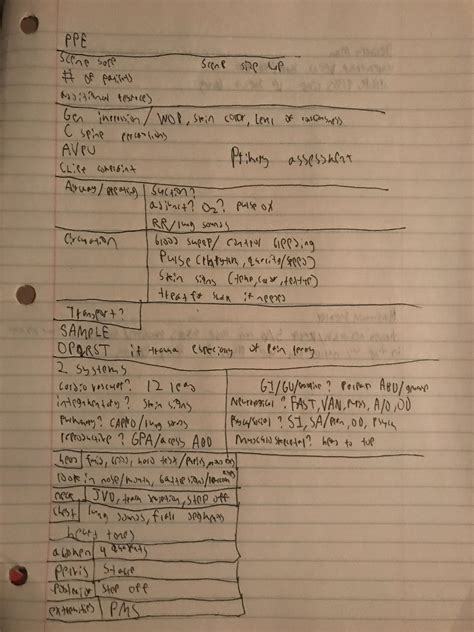 PPE
Scene safe Scene size up
# of patients
additional resources
Gen impression / WOB, skin color, Level of consciousness
C spine precautions
AVPU Primary assessment
Chief complaint
Airway/breathing Suction?
adjunct? O2? pulse ox
RR/lung sounds
Circulation blood sweep/ control bleeding
Pulse (rhythm, quality/speed)
Skin signs (temp, color, texture)
treat for shock if needed
Transport?
SAMPLE
OPQRST if trauma especially of pain
2 systems
Cardiovascular? 12 lead
integumentary? Skin signs
Pulmonary? CAPNO / lung sounds
reproductive? GPA/assess ABD
GI/GU/ ? Palpate ABD/
Neurological? FAST, VAN, PMS, A/O, OD
Psych/social? SI, SA/plan, OD, Psych
Musculoskeletal? head to toe
head
look in nose/mouth,
neck JVD, trach deviation, step off
chest lung sounds, flail segments
heart tones
abdomen 4 quadrants
Pelvis Stable
Posterior Step off
extremities PMS